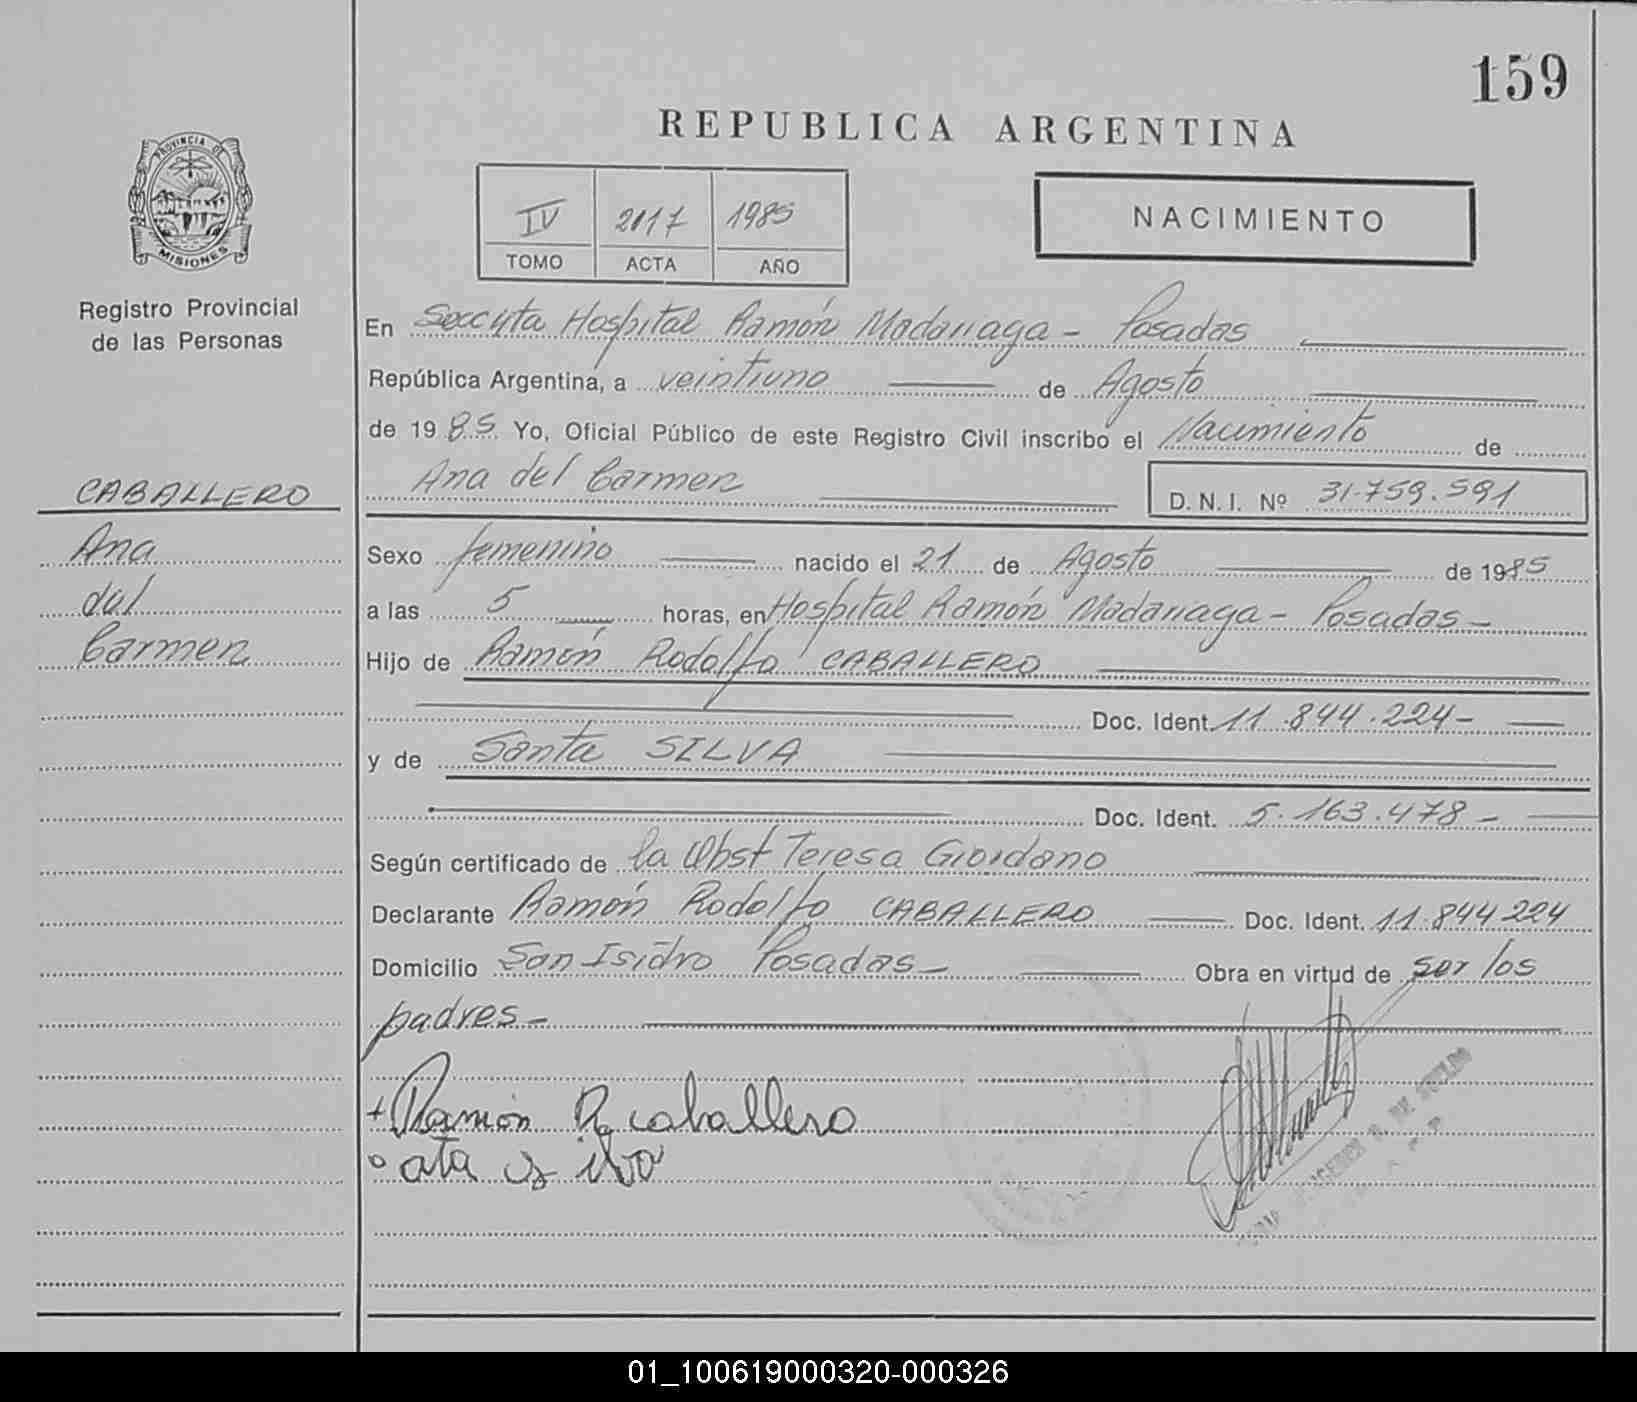 159
REPUBLICA ARGENTINA
PROVINCIA DE
MISIONES
IV 2017 1985
TOMO ACTA AÑO
NACIMIENTO
Registro Provincial
de las Personas
CABALLERO
Ana
del
Carmen
En Hospital Ramón Madariaga - Posadas
República Argentina, a veintiuno de Agosto
de 1985 Yo, Oficial Público de este Registro Civil inscribo el Nacimiento de
Ana del Carmen D.N.I. Nº 31.759.591
Sexo femenino nacido el 21 de Agosto de 1985
a las 5 horas, en Hospital Ramón Madariaga - Posadas -
Hijo de Ramón Rodolfo CABALLERO
Doc. Ident. 11.844.224-
y de Santa SILVA
Doc. Ident. 5.163.478 -
Según certificado de la Obst Teresa Giordano
Declarante Ramón Rodolfo CABALLERO Doc. Ident. 11.844.224
Domicilio San Isidro Posadas - Obra en virtud de ser los
padres -
Ramón R caballero
01_100619000320-000326